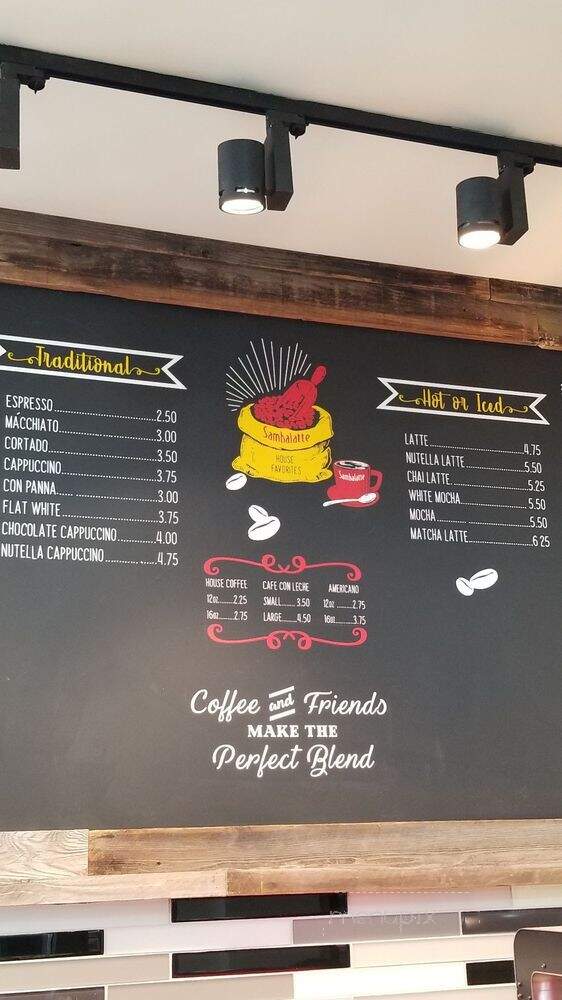 Traditional
ESPRESSO 2.50
MACCHIATO 3.00
CORTADO 3.50
CAPPUCCINO 3.75
CON PANNA 3.00
FLAT WHITE 3.75
CHOCOLATE CAPPUCCINO 4.00
NUTELLA CAPPUCCINO 4.75
Sambalatte
HOUSE
FAVORITES
Sambalatte
HOUSE COFFEE
12oz 2.25
16oz 2.75
CAFE CON LECHE
SMALL 3.50
LARGE 4.50
AMERICANO
12oz 2.75
16oz 3.75
Hot or Iced
LATTE 4.75
NUTELLA LATTE 5.50
CHAI LATTE 5.25
WHITE MOCHA 5.50
MOCHA 5.50
MATCHA LATTE 6 25
Coffee and Friends
MAKE THE
Perfect Blend
menupix